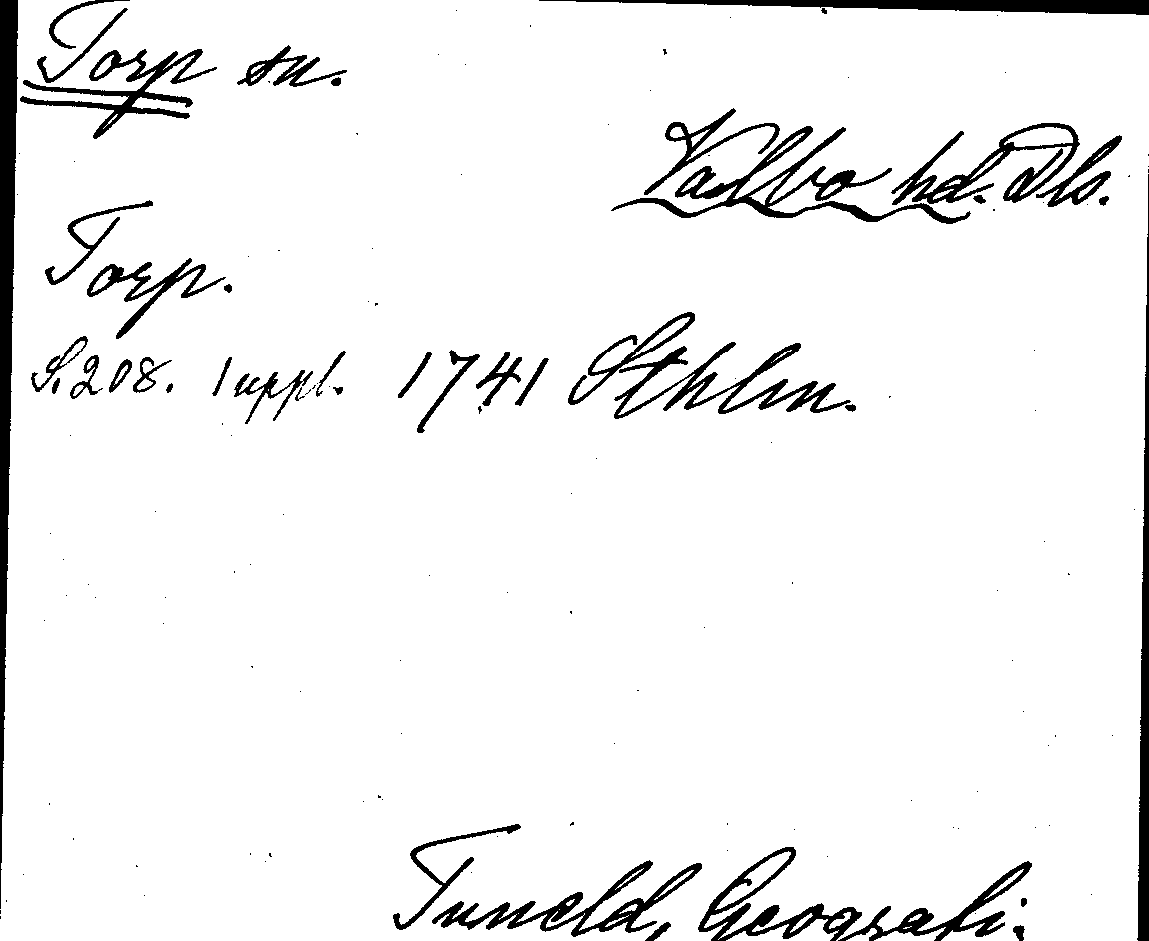 Torp sn.
Valbo hd. Dls.
Torp.
S. 208. 1 uppl. 1741 Sthlm.
Tuneld, Geografi.